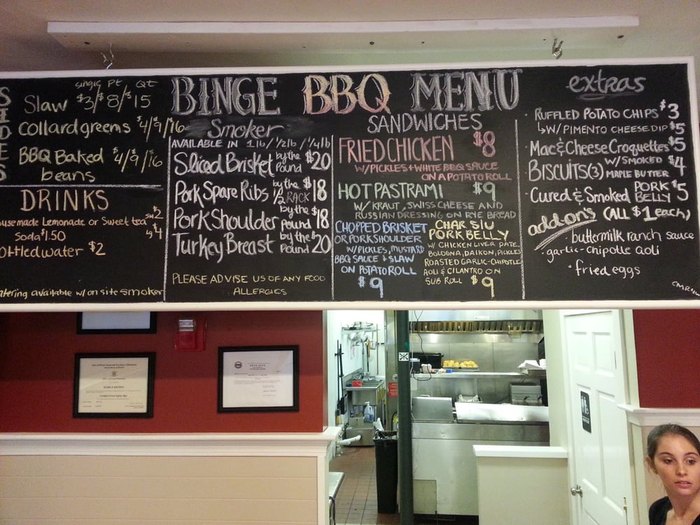 BINGE BBQ MENU
SIDES
single Pt Qt
Slaw $3/$8/$15
Collard greens $4/$9/$16
BBQ Baked $4/$9/$16
beans
DRINKS
Lemonade or Sweet tea $2
$4
Soda $1.50
water $2
catering available w/ on site smoker
Smoker
AVAILABLE IN 1 lb / 1/2 lb / 1/4 lb
Sliced Brisket by the Pound $20
Pork Spare Ribs by the 1/2 RACK $18
Pork Shoulder by the Pound $18
Turkey Breast by the Pound $20
PLEASE ADVISE US OF ANY FOOD
ALLERGIES
SANDWICHES
FRIED CHICKEN $8
W/ PICKLES + WHITE BBQ SAUCE
ON A POTATO ROLL
HOT PASTRAMI $9
W/ KRAUT, SWISS CHEESE AND
RUSSIAN DRESSING ON RYE BREAD
CHOPPED BRISKET
OR PORK SHOULDER
W/ PICKLES, MUSTARD
BBQ SAUCE + SLAW
ON POTATO ROLL
$9
CHAR SIU
PORK BELLY
W/ CHICKEN LIVER PATE,
BOLOGNA, DAIKON, PICKLES,
ROASTED GARLIC-CHIPOTLE
AIOLI & CILANTRO ON
SUB ROLL $9
extras
RUFFLED POTATO CHIPS $3
W/ PIMENTO CHEESE DIP $5
Mac & Cheese Croquettes $5
BISCUITS (3) W/ SMOKED MAPLE BUTTER $4
Cured & Smoked PORK BELLY $5
add-ons (ALL $1 each)
buttermilk ranch sauce
garlic-chipotle aioli
fried eggs